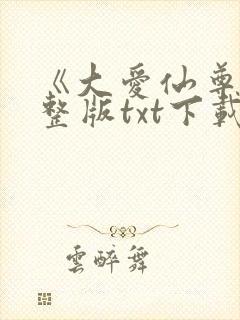 《大爱仙尊
整版txt下载
雲醉舞